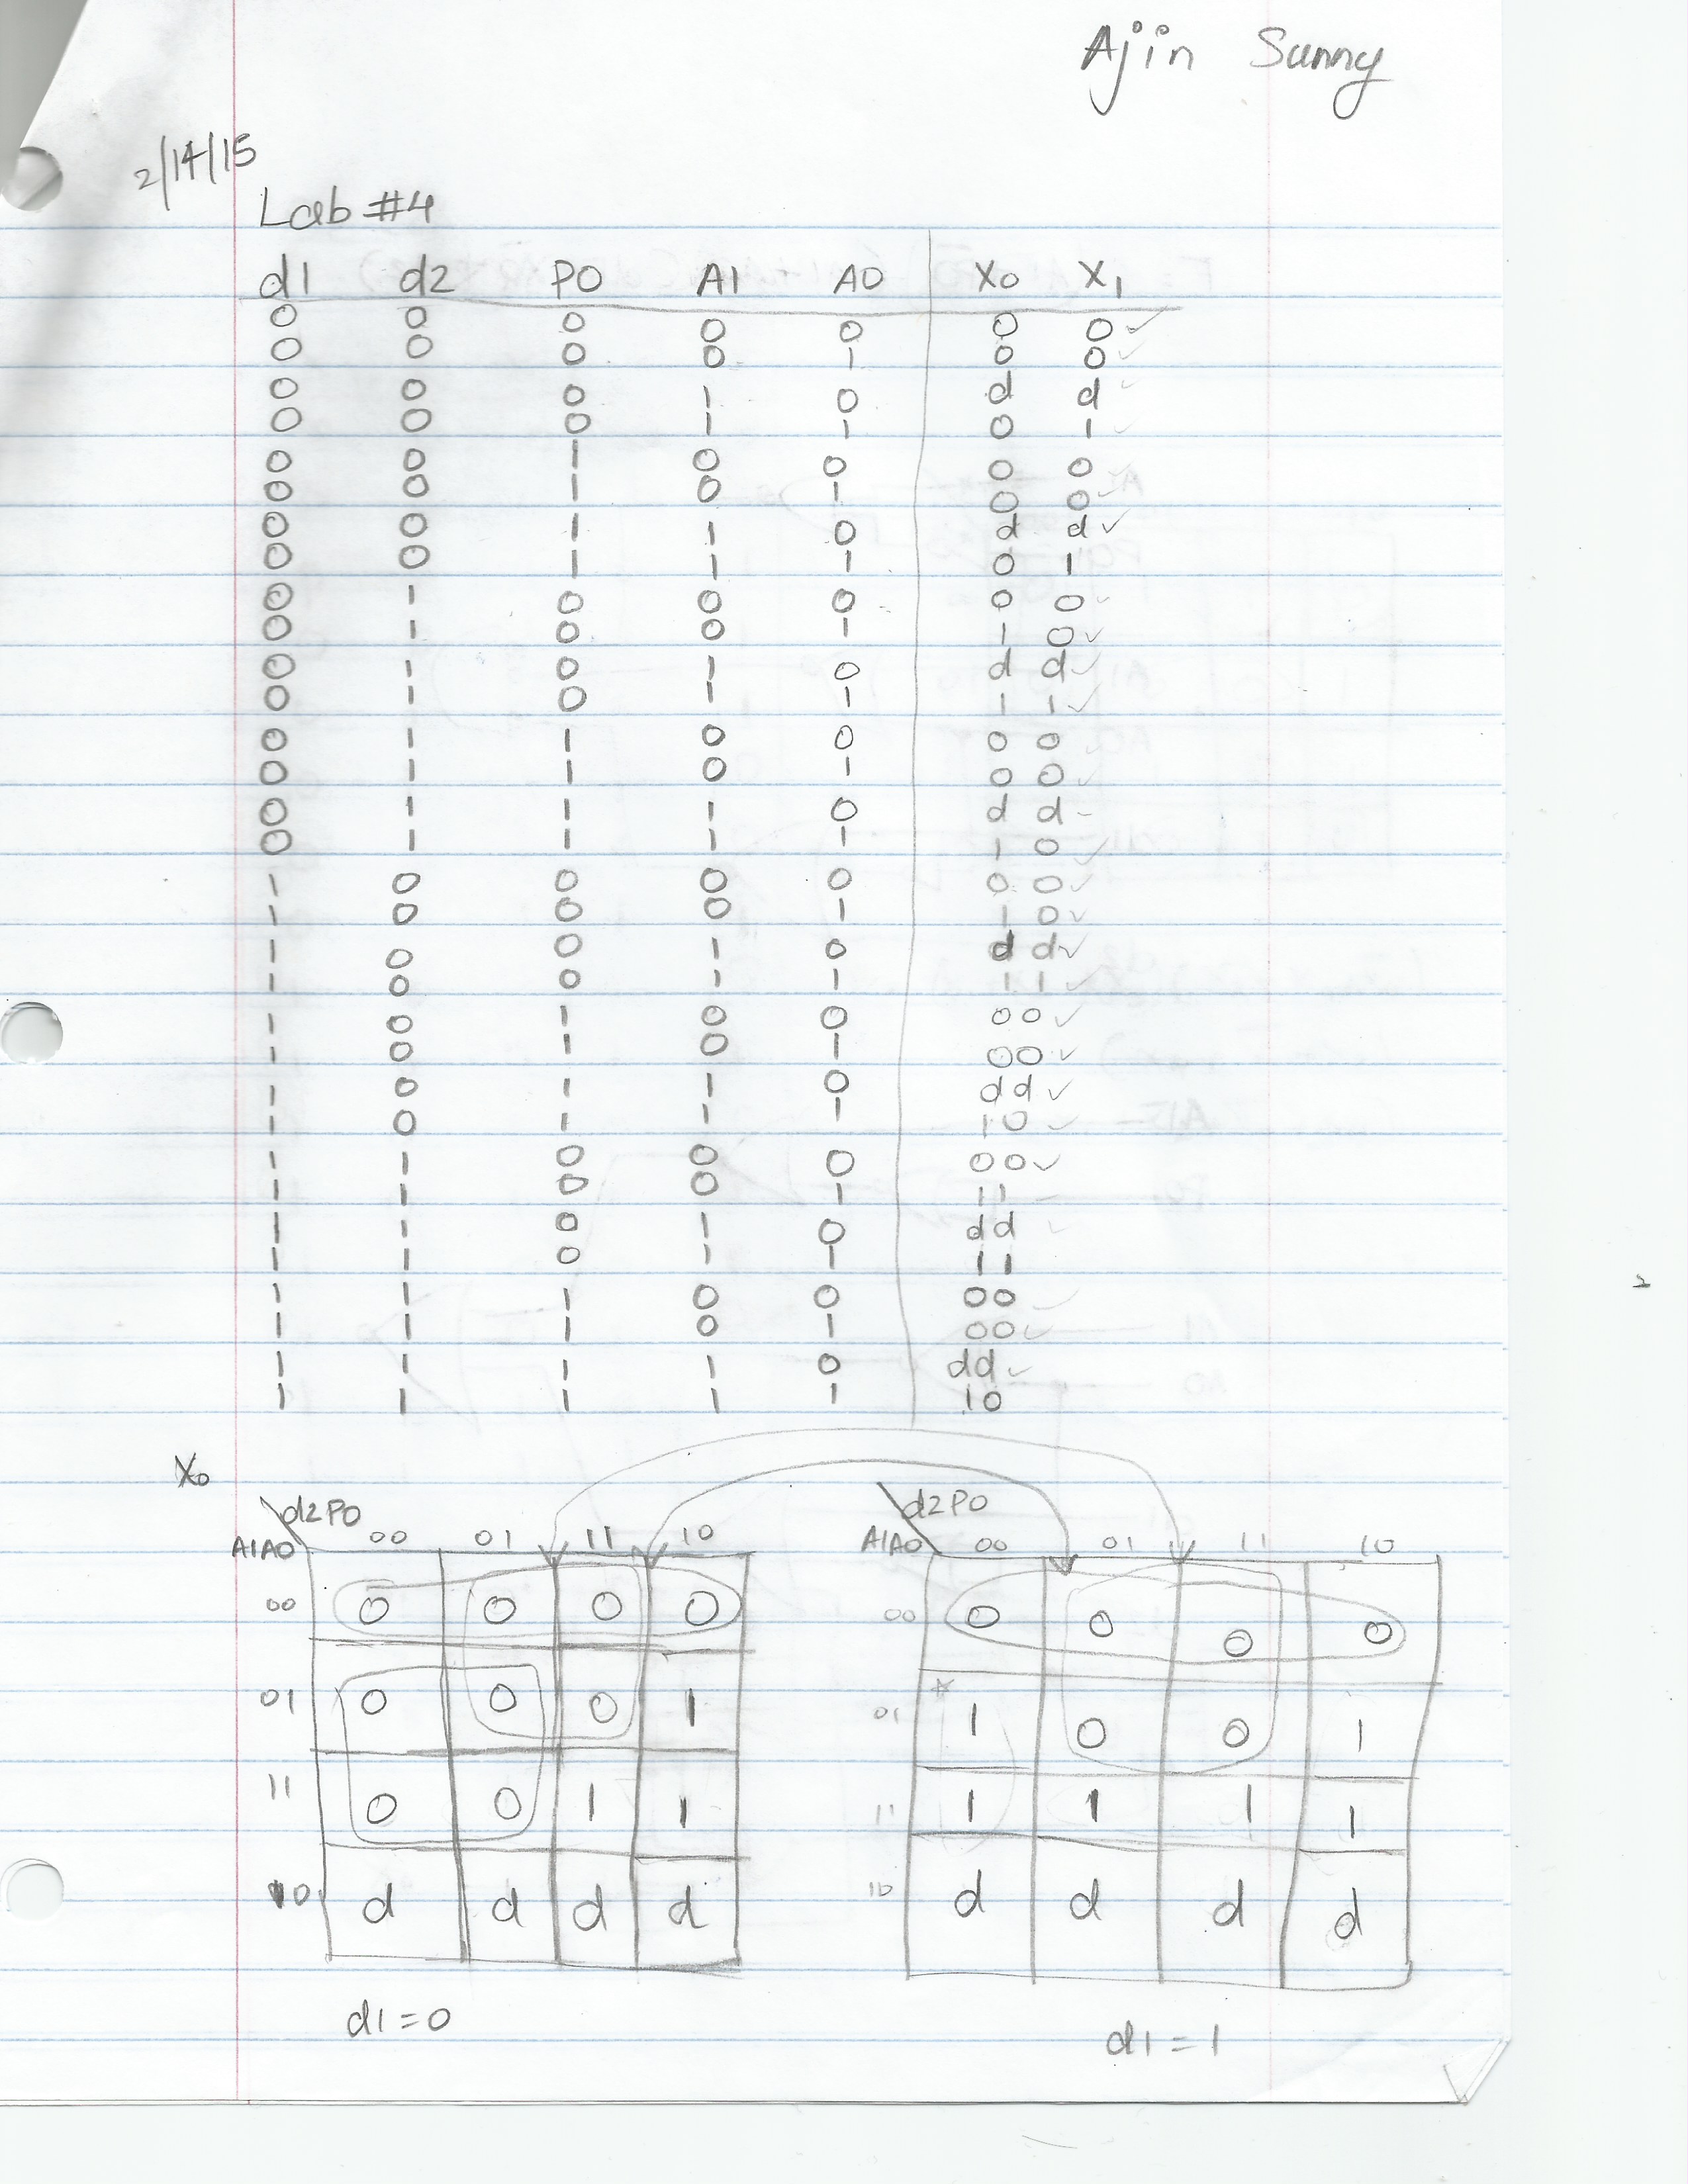 Ajin Sunny
2/14/15
Lab #4
d1 d2 P0 A1 A0 X0 X1
0 0 0 0 0 0 0 ✓
0 0 0 0 1 0 0 ✓
0 0 0 1 0 d d ✓
0 0 0 1 1 0 1 ✓
0 0 1 0 0 0 0 ✓
0 0 1 0 1 0 0 ✓
0 0 1 1 0 d d ✓
0 0 1 1 1 0 1
0 1 0 0 0 0 0 ✓
0 1 0 0 1 1 0 ✓
0 1 0 1 0 d d ✓
0 1 0 1 1 1 1 ✓
0 1 1 0 0 0 0
0 1 1 0 1 0 0 ✓
0 1 1 1 0 d d -
0 1 1 1 1 1 0 ✓
1 0 0 0 0 0 0 ✓
1 0 0 0 1 1 0 ✓
1 0 0 1 0 d d ✓
1 0 0 1 1 1 1 ✓
1 0 1 0 0 0 0 ✓
1 0 1 0 1 0 0 ✓
1 0 1 1 0 d d ✓
1 0 1 1 1 1 0 ✓
1 1 0 0 0 0 0 ✓
1 1 0 0 1 1 1 ✓
1 1 0 1 0 d d ✓
1 1 0 1 1 1 1
1 1 1 0 0 0 0 ✓
1 1 1 0 1 0 0 ✓
1 1 1 1 0 d d ✓
1 1 1 1 1 1 0
X0
d2P0
A1A0 00 01 11 10
00 0 0 0 0
01 0 0 0 1
11 0 0 1 1
10 d d d d
d1=0
d2P0
A1A0 00 01 11 10
00 0 0 0 0
01 1 0 0 1
11 1 1 1 1
10 d d d d
d1=1